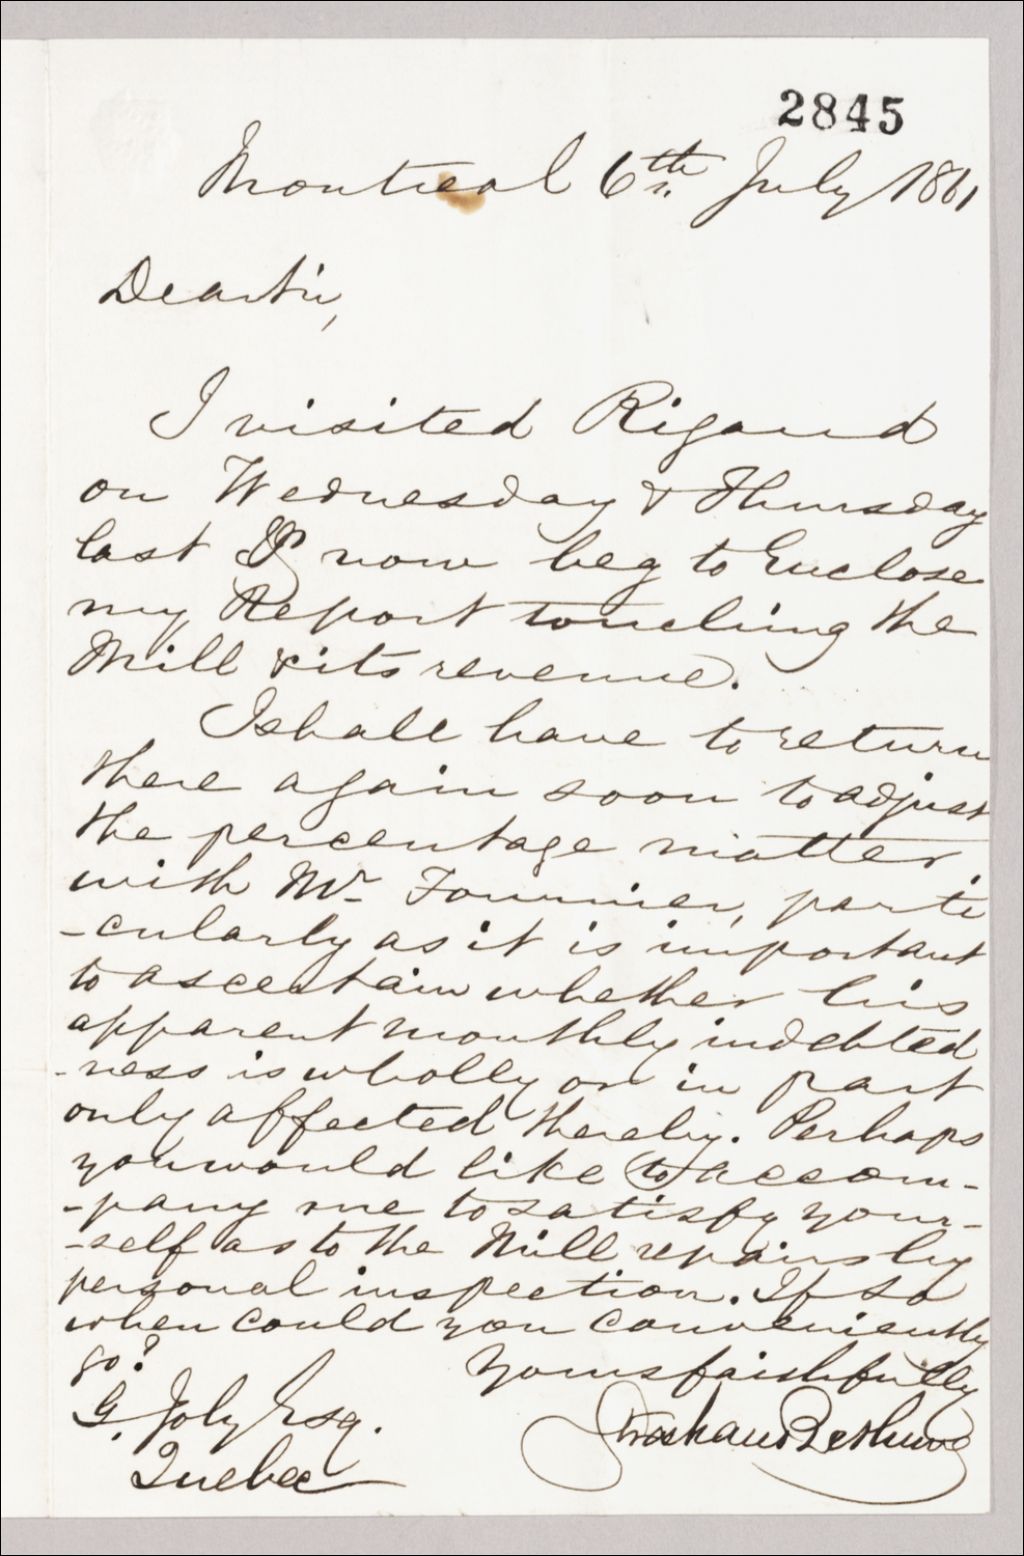 2845
Montreal 6th July 1861
Dear Sir,
I visited Rigaud
on Wednesday & Thursday
last & now beg to Enclose
my Report touching the
Mill & its revenue.
I shall have to return
there again soon to adjust
the percentage matter
with Mr Fournier, parti
-cularly as it is important
to ascertain whether his
apparent monthly indebted
-ness is wholly or in part
only affected thereby. Perhaps
you would like to accom-
-pany me to satisfy your-
-self as to the Mill repairs by
personal inspection. If so
when could you conveniently
go?
Yours faithfully
Strachan Bethune
G. Joly Esq.
Quebec